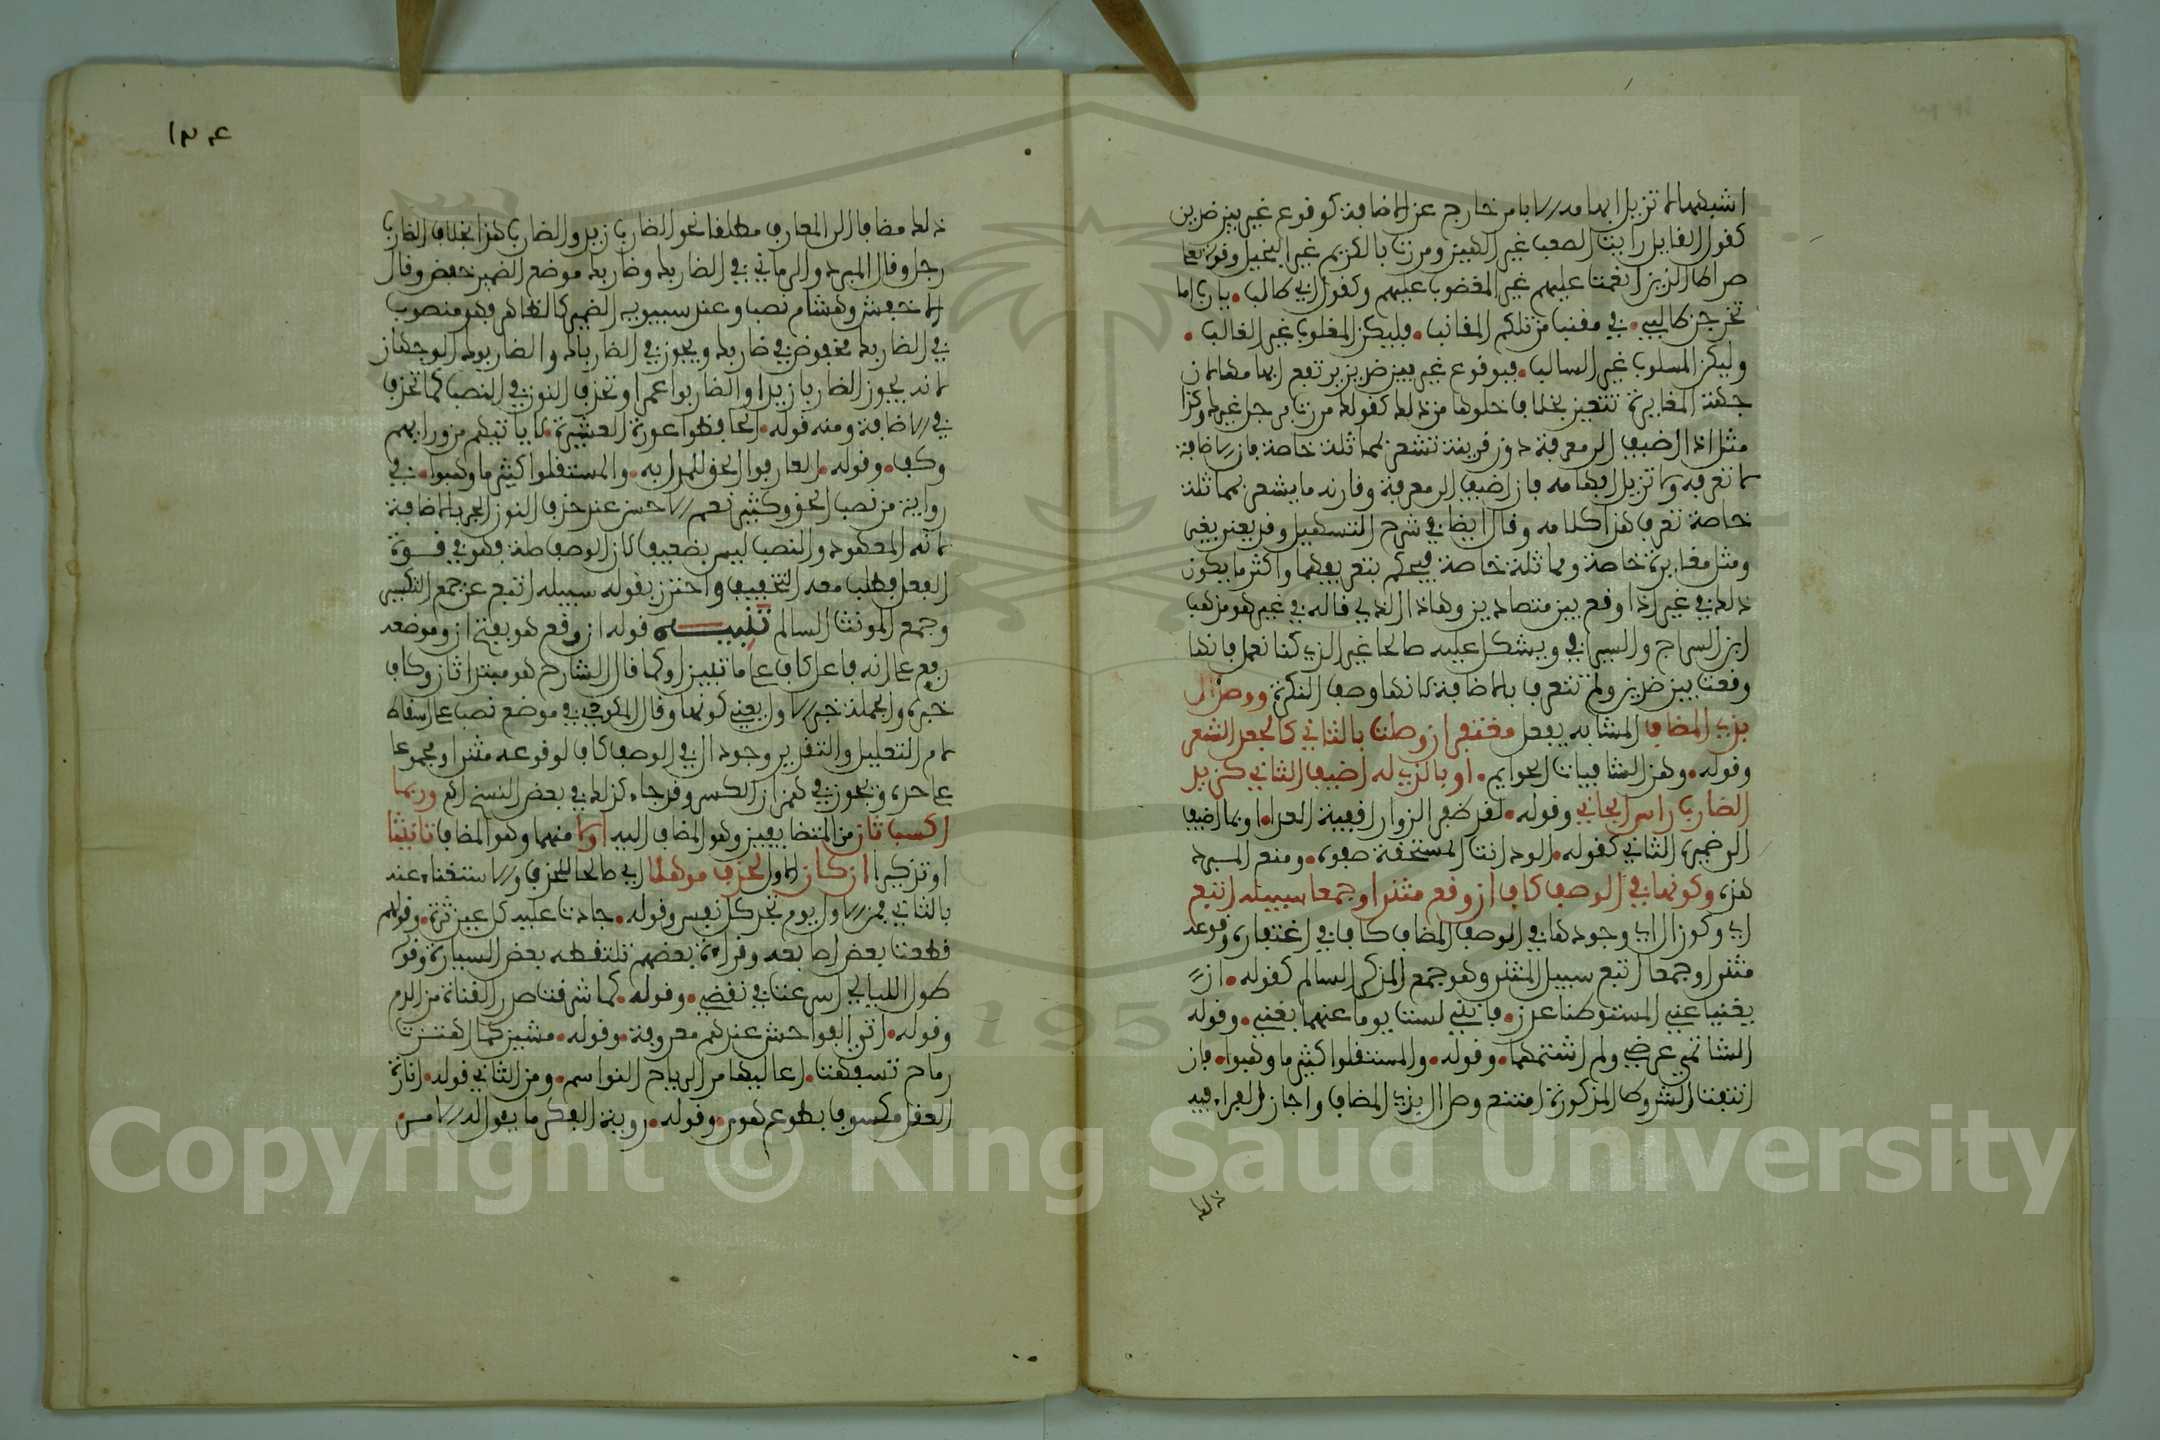 اشبههما لا تزيل ابهامه الا بامر خارج عن الاضافة كوقوع غير بين ضدين
كقول القايل رايت الصعب غير الهين ومررت بالكريم غير البخيل وقوله تعلى
صراط الذين انعمت عليهم غير المغضوب عليهم وكقول ابي طالب. يا رب اما
تخرجن طالبي. في مقنب من تلكم المقانب. فليكن المغلوب غير الغالب.
وليكن المسلوب غير السالب. فبوقوع غير بين ضدين يرتفع ابهامها لان
جهة المغايرة تتعين بخلاف خلوها من ذلك كقولك مررت برجل غيرك وكذا
مثل اذا اضيف الى معرفة دون قرينة تشعر بمماثلة خاصة فان الاضافة
لا تعرفه ولا تزيل ابهامه فان اضيف الى معرفة وقارنه ما يشعر بمماثلة
خاصة تعرف هذا كلامه وقال ايضا في شرح التسهيل وقد يعنى بغير
ومثل مغايرة خاصة ومماثلة خاصة فيحكم بتعريفهما واكثر ما يكون
ذلك في غير اذا وقع بين متضادين وهاذا الذي قاله في غير هو مذهب
ابن السراج والسيرافي ويشكل عليه صالحا غير الذي كنا نعمل فانها
وقعت بين ضدين ولم تتعرف بالاضافة لانها وصف النكرة ووصل ال
بذي المضاف المشابه يفعل مغتفر ان وصلت بالثاني كالجعد الشعر
وقوله. وهن الشافيات الحوايم. او بالذي له اضيف الثاني كزيد
الضارب راس الجاني وقوله. لقد ظفر الزوار اقفية العدا. او بما اضيف
الى ضميره الثاني كقوله. الود انت المستحقة صفوه. ومنع المبرد
هذه وكونها في الوصف كاف ان وقع مثنى او جمعا سبيله اتبع
اي وكون ال اي وجودها في الوصف المضاف كاف في اغتفاره وقوعه
مثنى او جمعا اتبع سبيل المثنى وهو جمع المذكر السالم كقوله. ان
يغنيا عني المستوطنا عدن. فانني لست يوما عنهما بغني. وقوله
الشاتمي عرضي ولم اشتمهما. وقوله. والمستقلوا كثير ما وهبوا. فان
انتفت الشروط المذكورة امتنع وصل ال بذي المضاف واجاز الفراء فيه
ذلك
١٣٤
ذلك مضافا الى المعارف مطلقا نحو الضارب زيد والضارب هذا بخلاف الضارب
رجل وقال المبرد والرماني في الضاربك وضاربك موضع الضمير خفض وقال
الاخفش وهشام نصب وعند سيبويه الضمير كالظاهر فهو منصوب
في الضاربك مخفوض في ضاربك ويجوز في الضارباك والضاربوك الوجهان
لانه يجوز الضاربا زيدا والضاربوا عمرا وتحذف النون في النصب كما تحذف
في الاضافة ومنه قوله. الحافظوا عورة العشيرة. لا ياتيهم من ورايهم
وكف. وقوله. العارفوا الحق للمدل به. والمستقلوا كثير ما وهبوا. في
رواية من نصب الحق وكثير نعم الاحسن عند حذف النون الجر بالاضافة
لانه المعهود والنصب ليس بضعيف لان الوصف صلة فهو في قوة
الفعل فطلب معه التخفيف واحترز بقوله سبيله اتبع عن جمع التكسير
وجمع المونث السالم تنبيه قوله ان وقع هو بفتح ان وموضعه
رفع على انه فاعل كاف على ما تبين اولا كما قال الشارح هو مبتدا ثان وكاف
خبره والجملة خبر الاول يعني كونها وقال المكودي في موضع نصب على اسقاط
لام التعليل والتقدير وجود ال في الوصف كاف لوقوعه مثنى او مجموعا
على حده ويجوز في همزان الكسر وقد جاء كذلك في بعض النسخ اهـ وربما
اكسب ثان من المتضايفين وهو المضاف اليه اولا منهما وهو المضاف تانيثا
او تذكيرا ان كان الاول لحذف موهلا اي صالحا للحذف والاستغناء عنه
بالثاني فمن الاول يوم تجد كل نفس وقوله. جادت عليه كل عين ثرة. وقولهم
قطعت بعض اصابعه وقراءة بعضهم تلتقطه بعض السيارة وقوله
طول الليالي اسرعت في نقضي. وقوله. كما شرقت صدر القناة من الدم
وقوله. اتي الفواحش عندهم معروفة. وقوله. مشين كما اهتزت
رماح تسفهت. اعاليها مر الرياح النواسم. ومن الثاني قوله. انارة
العقل مكسوف بطوع هوى. وقوله. روية الفكر ما يئول له الامر